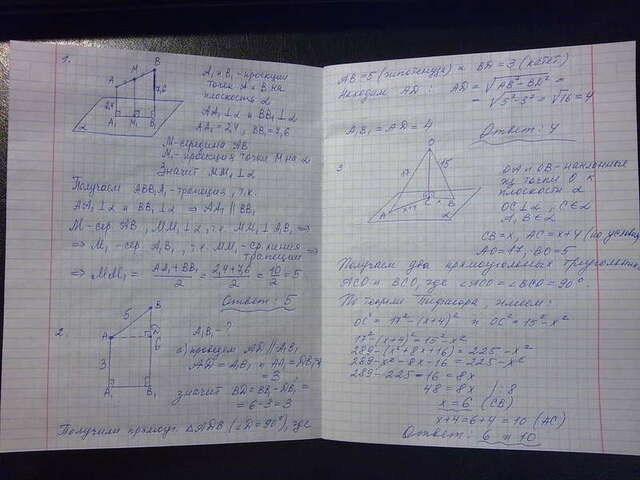 1.
A M B
2,4 7,6
A₁ M₁ B₁
α
A₁ и B₁ - проекции
точек A и B на
плоскость α
AA₁ ⊥ α и BB₁ ⊥ α
AA₁ = 2,4, BB₁ = 7,6
M - середина AB
M₁ - проекция точки M на α
Значит MM₁ ⊥ α
Получаем ABB₁A₁ - трапеция, т.к.
AA₁ ⊥ α и BB₁ ⊥ α ⇒ AA₁ ∥ BB₁
M - сер. AB, MM₁ ⊥ α, т.к. MM₁ ⊥ A₁B₁ ⇒
⇒ M₁ - сер. A₁B₁, т.к. MM₁ - ср. линия трапеции ⇒
⇒ MM₁ = (AA₁ + BB₁)/2 = (2,4 + 7,6)/2 = 10/2 = 5
Ответ: 5
2.
B
5
A D
6
3
A₁ B₁
A₁B₁ - ?
а) проведем AD ∥ A₁B₁
AD = A₁B₁ и AA₁ = DB₁ =
= 3
значит BD = BB₁ - DB₁ =
= 6 - 3 = 3
Получили прямоуг. △ADB (∠D = 90°), где
AB = 5 (гипотенуза) и BD = 3 (катет)
Находим AD: AD = √(AB² - BD²) =
= √(5² - 3²) = √16 = 4
A₁B₁ = AD = 4
Ответ: 4
3
O
17 15
A x+4 C x B
α
OA и OB - наклонные
из точки O к
плоскости α
OC ⊥ α, C ∈ α
A, B ∈ α
CB = x, AC = x + 4 (по
Получаем два прямоугольных
ACO и BCO, где = ∠BCO = 90°.
По теореме Пифагора, имеем:
OC² = 17² - (x+4)² и OC² = 15² - x²
17² - (x+4)² = 15² - x²
289 - (x² + 8x + 16) = 225 - x²
289 - x² - 8x - 16 = 225 - x²
289 - 225 - 16 = 8x
48 = 8x | : 8
x = 6 (CB)
x + 4 = 6 + 4 = 10 (AC)
Ответ: 6 и 10